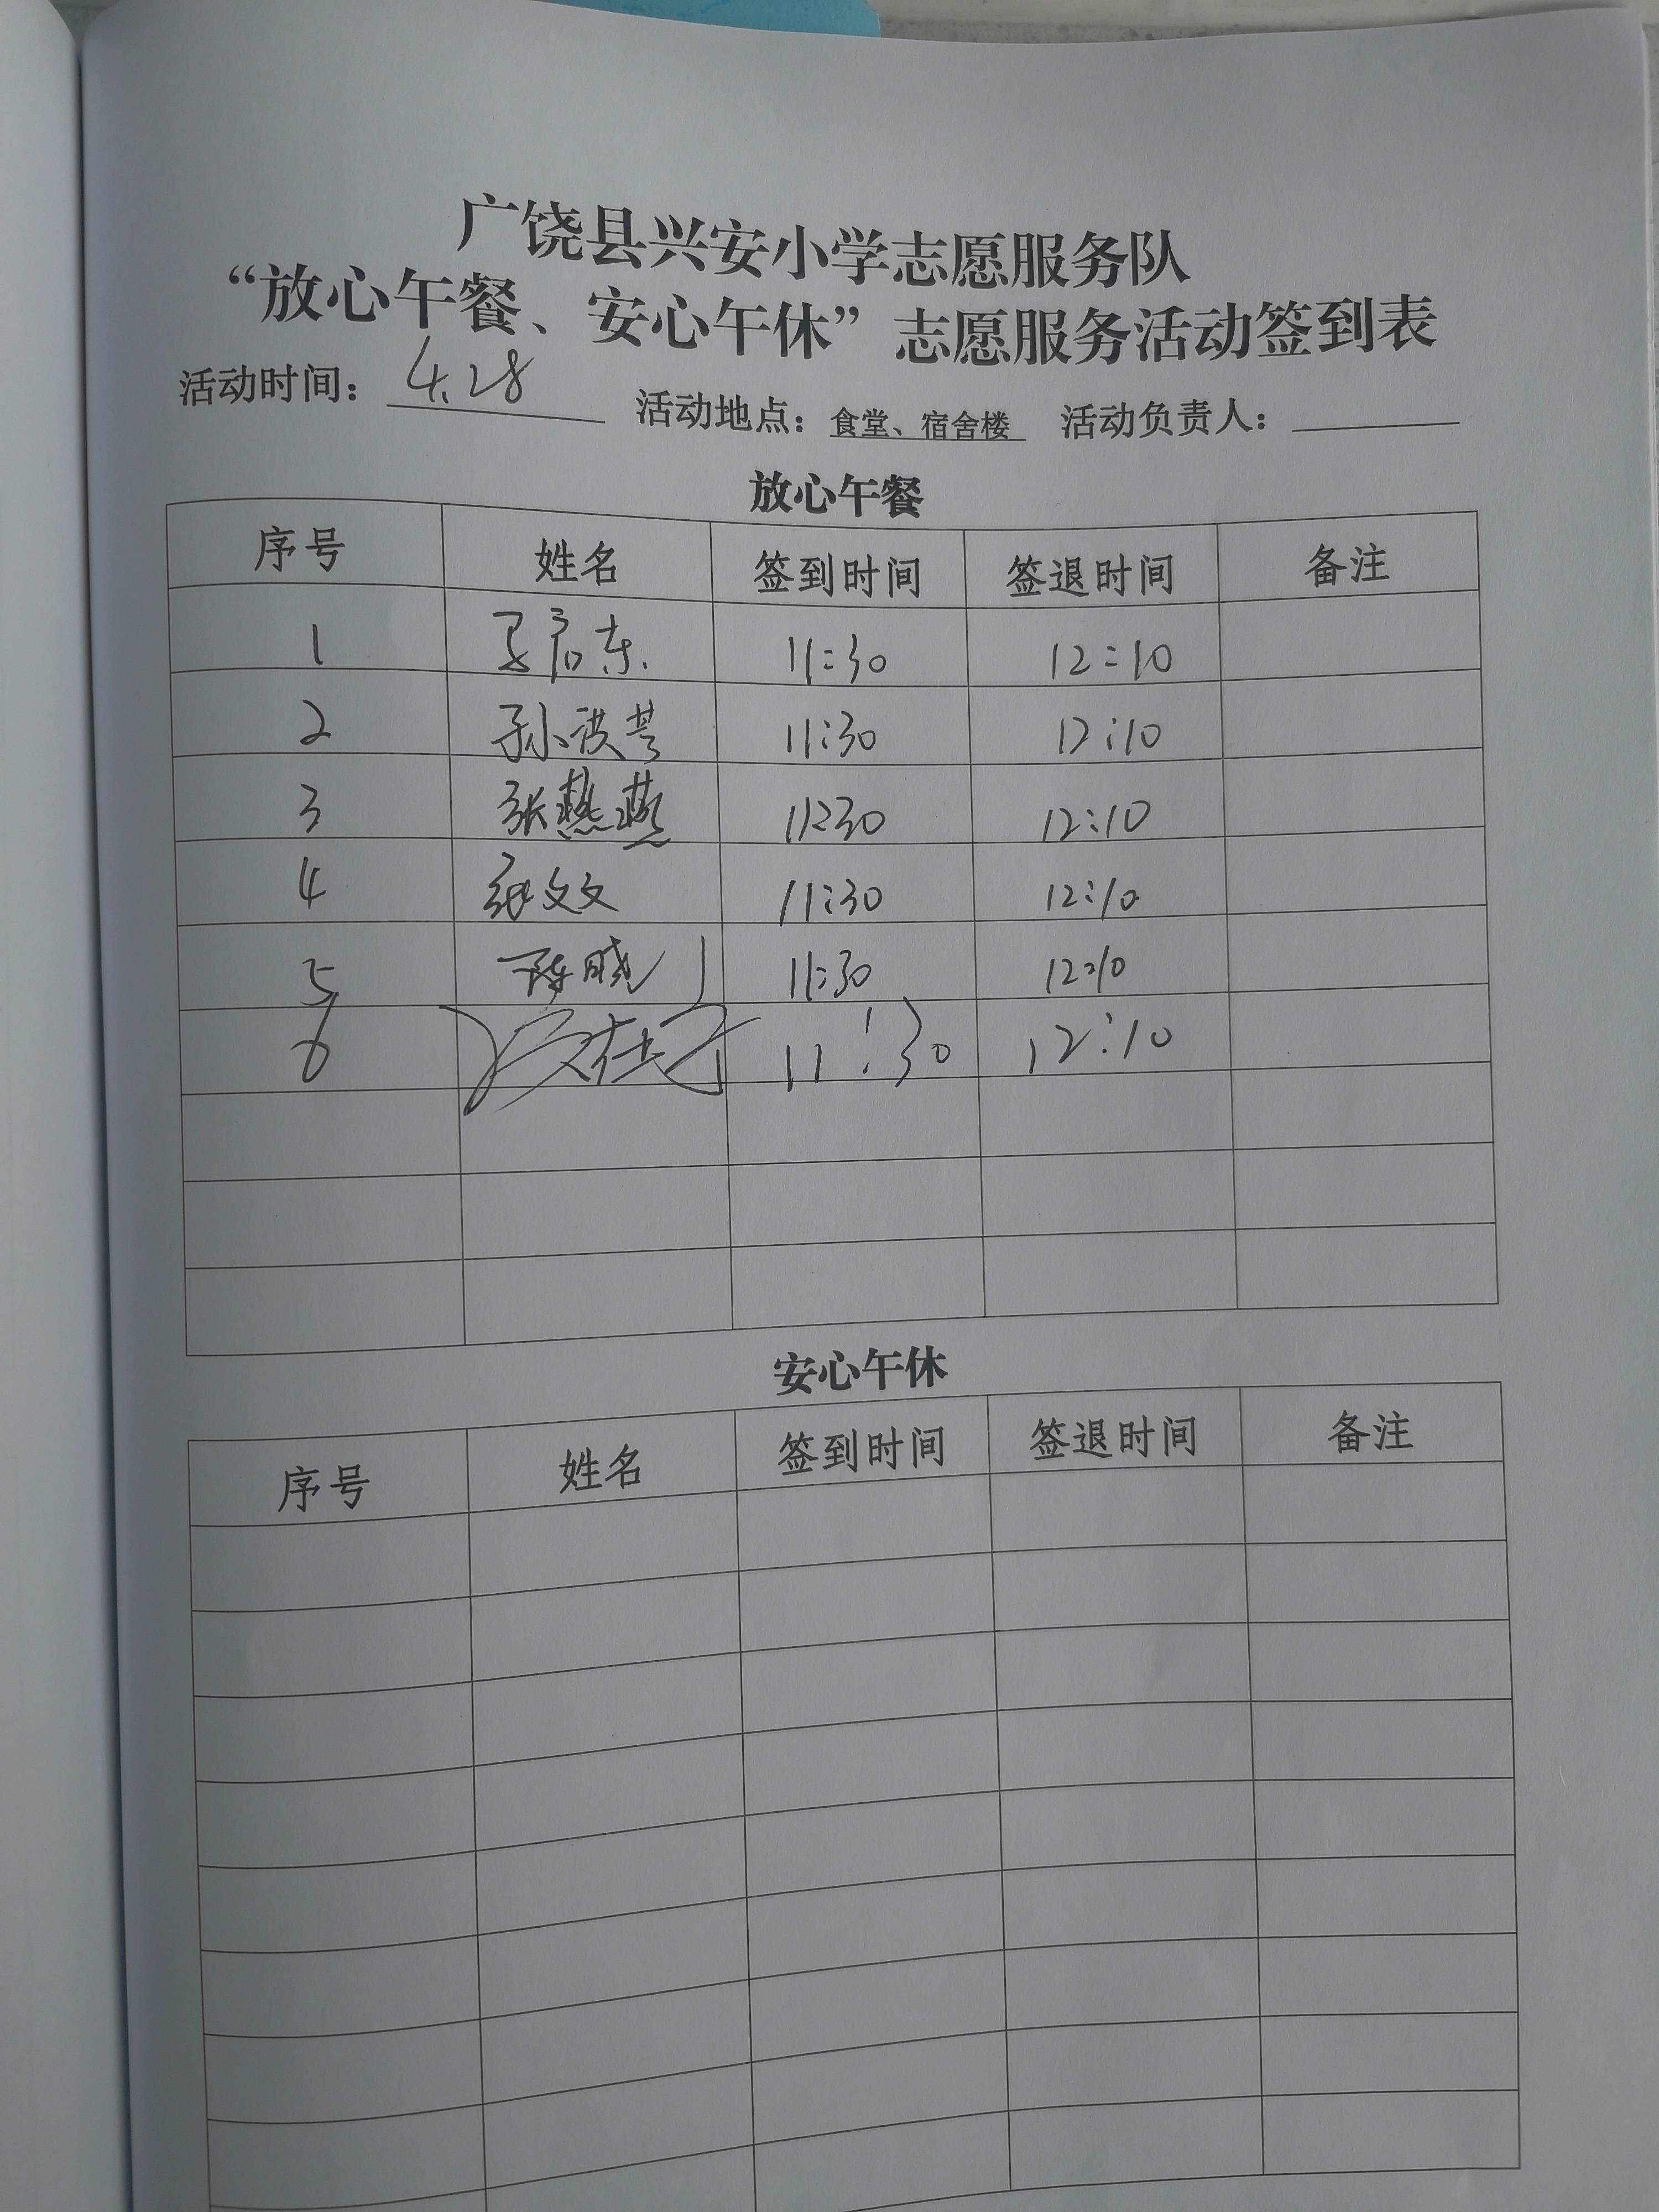 广饶县兴安小学志愿服务队
“放心午餐、安心午休”志愿服务活动签到表
活动时间：4.28 活动地点：食堂、宿舍楼 活动负责人：
放心午餐
序号 姓名 签到时间 签退时间 备注
1 11:30 12:10
2 孙洪 11:30 12:10
3 张燕燕 11:30 12:10
4 文文 11:30 12:10
5 陈晓 11:30 12:10
6 11:30 12:10
安心午休
序号 姓名 签到时间 签退时间 备注